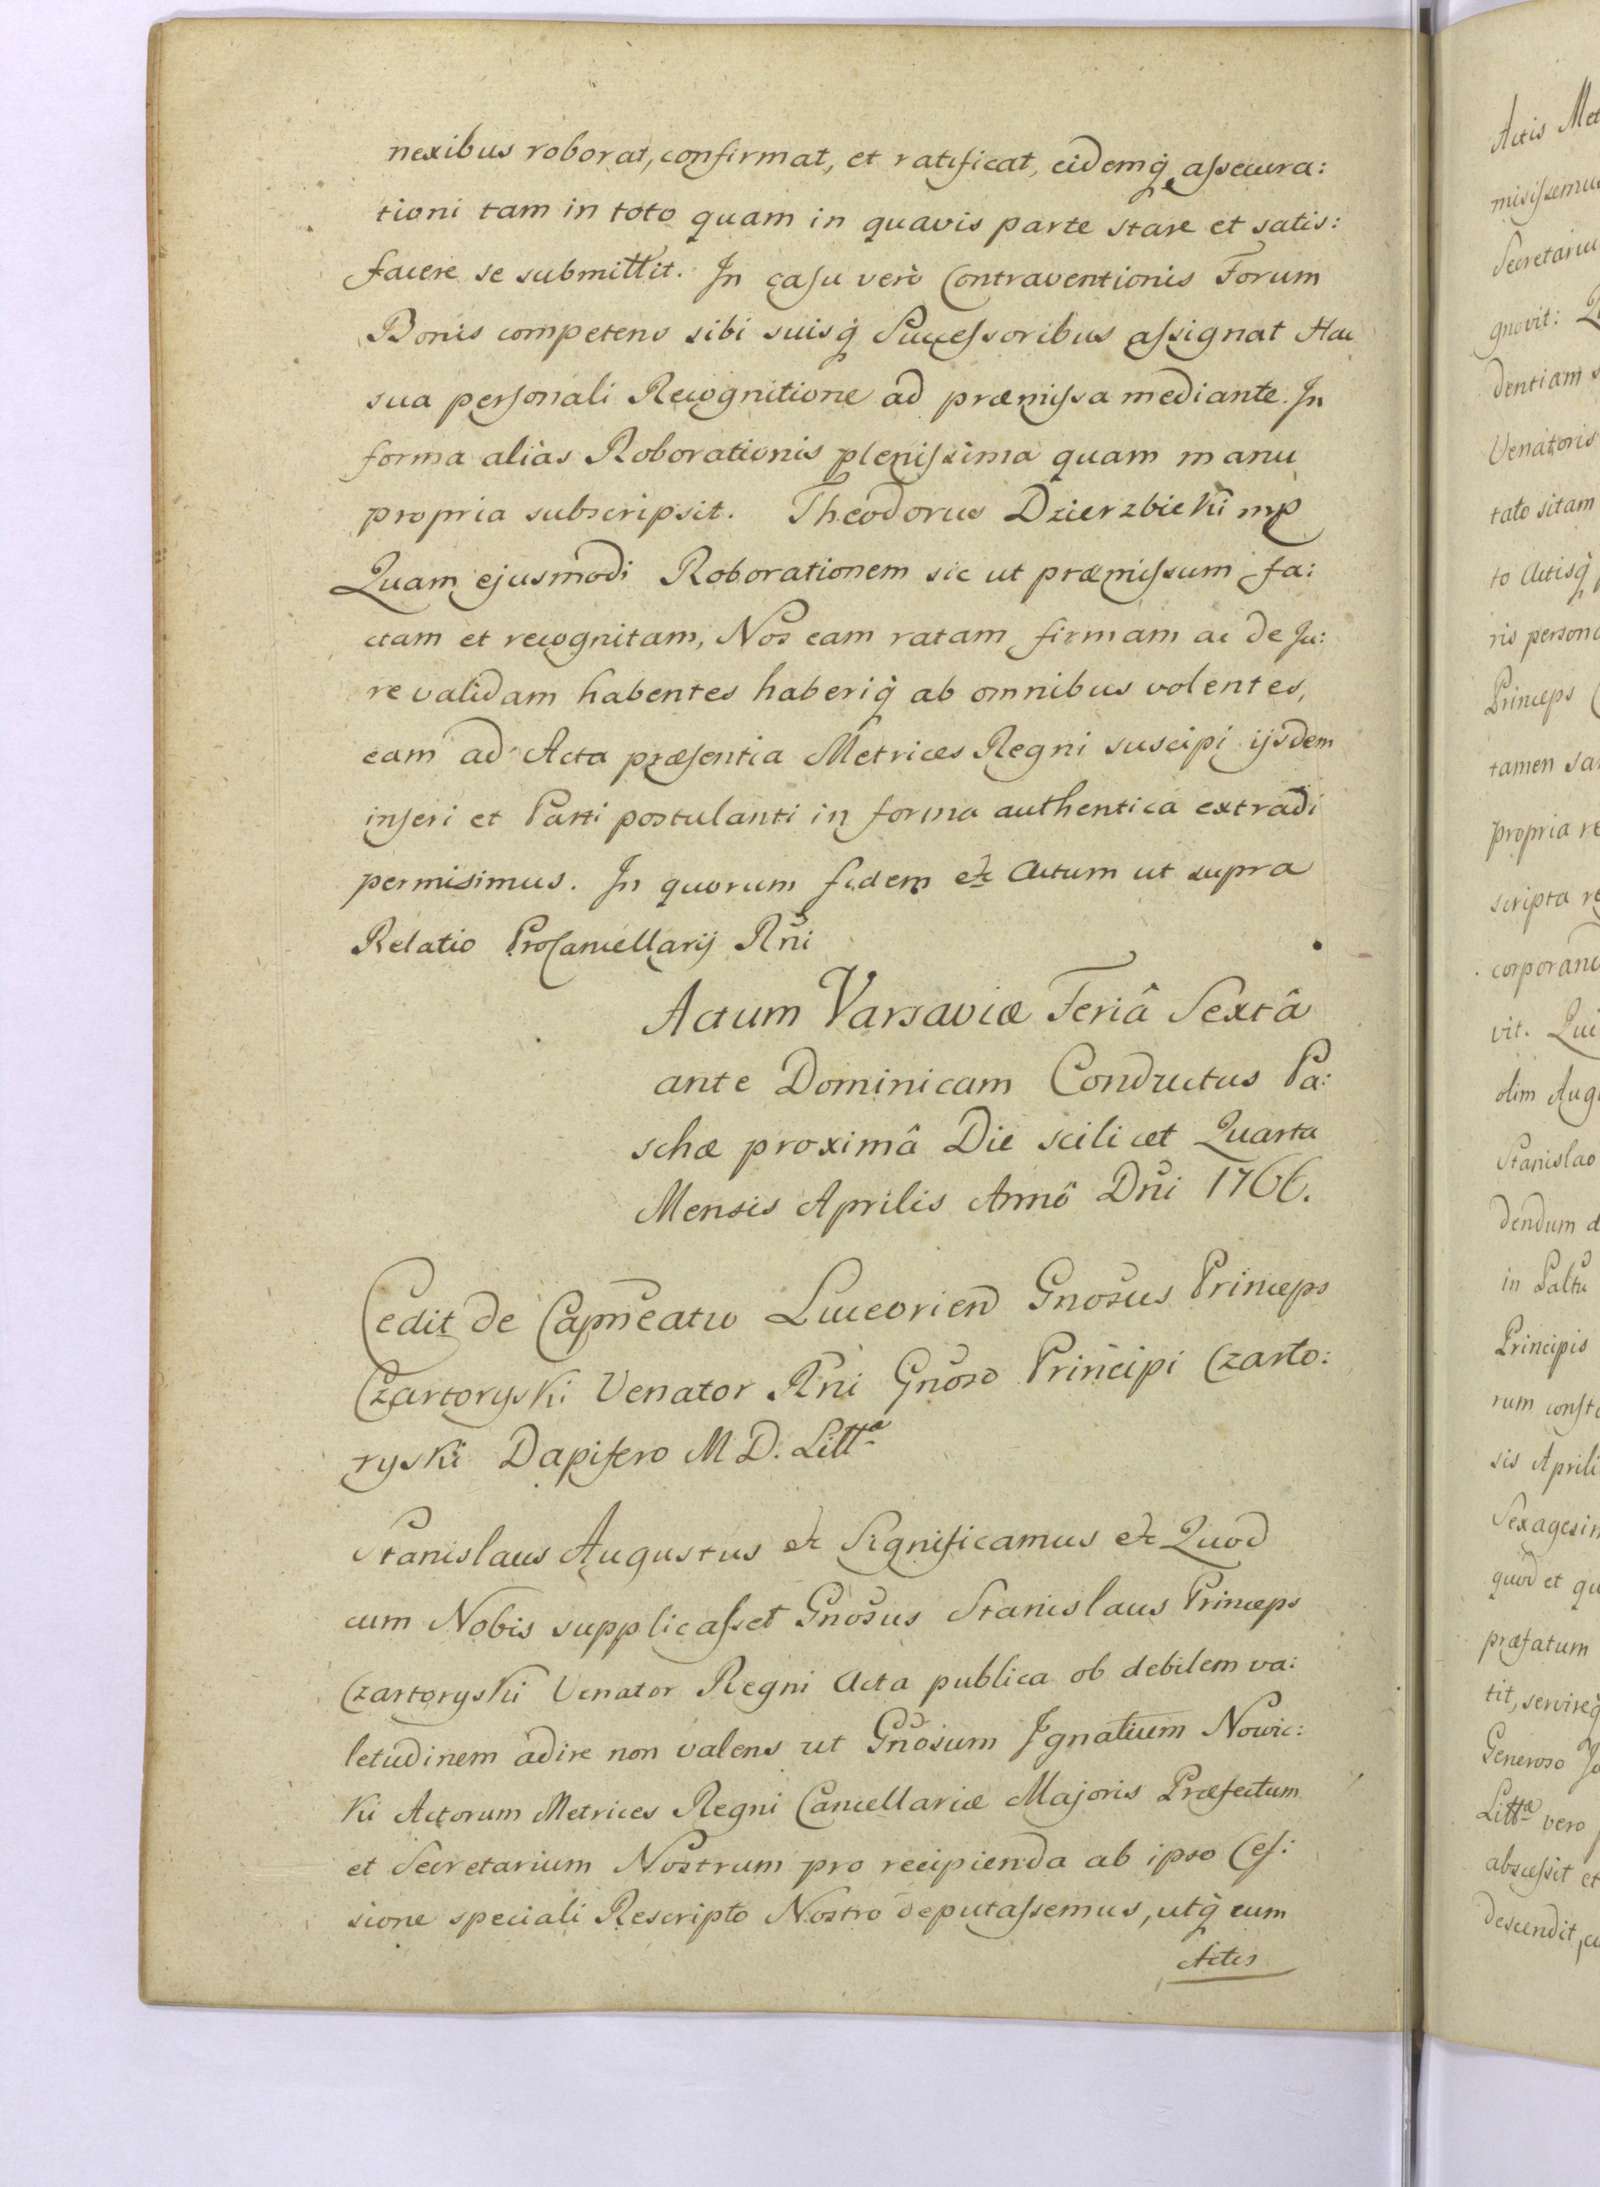 nexibus roborat, confirmat, et ratificat, eidemq̃ aſsecura:
tioni tam in toto quam in quavis parte stare et satis:
facere se submittit. In caſu verò Contraventionis Forum
Bonis competens sibi suisq̃ Succeſsoribus aſsignat Hac
sua perſonali Recognitione ad præmiſsa mediante. In
forma aliàs Roborationis pleniſsima quam manu
propria subscripsit. Theodorus Dzierzbicki mp
Quam ejusmodi Roborationem sic ut præmiſsum fa:
ctam et recognitam, Nos eam ratam firmam ac de Ju:
re validam habentes haberiq̃ ab omnibus volentes,
eam ad Acta præſentia Metrices Regni suscipi ijsdem
inſeri et Parti postulanti in forma authentica extradi
permisimus. In quorum fidem etc Actum ut supra
Relatio ProCancellarij Rñi
Actum Varsaviæ Feriâ Sextâ
ante Dominicam Conductus Pa:
schæ proximâ Die scilicet Quarta
Mensis Aprilis Annô Dñi 1766.
Cedit de Capñeatu Luceorien Gnõsus Princeps
Czartoryski Venator Rñi Gnõso Principi Czarto:
ryski Dapifero M D. Littæ
Stanislaus Augustus etc Significamus etc Quod
cum Nobis supplicaſset Gnõsus Stanislaus Princeps
Czartoryski Venator Regni Acta publica ob debilem va:
letudinem adire non valens ut Gnõsum Ignatium Nowic:
ki Actorum Metrices Regni Cancellariæ Majoris Præfectum
et Secretarium Nostrum pro recipienda ab ipso Ceſ:
sione speciali Rescripto Nostro deputaſsemus, utq̃ eum
Actis
Actis Met
misiſsemus
Secretariu
gnovit:
dentiam
Venatoris
tato sitam
to Actisq̃
ris persona
Princeps
tamen sa
propria re
scripta re
corporand
vit. Qui
olim Aug
Stanislao
dendum d
in Paltu
Principis
rum conſt
sis Aprili
Sexagesim
quod et qu
præfatum
tit, servireq̃
Generoso Jo
Littæ vero
absceſsit et
descendit,